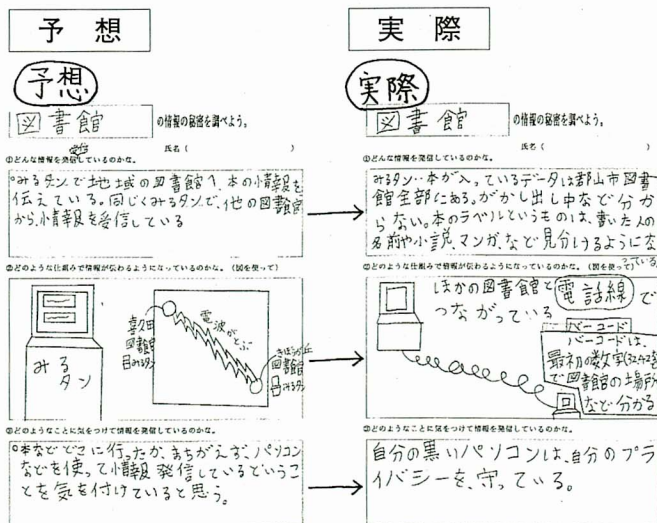 予想
予想
図書館 の情報の秘密を調べよう。
氏名 ( )
①どんな情報を発信しているのかな。
みるタンで地域の図書館へ、本の情報を
伝えている。同じくみるタンで、他の図書館
から、情報を受信している
②どのような仕組みで情報が伝わるようになっているのかな。(図を使って)
みる
タン
喜久田
図書館
みるタン
電波がとぶ
きぼうが丘
図書館
みるタン
③どのようなことに気をつけて情報を発信しているのかな。
本などどこに行ったか、まちがえず、パソコン
などを使って情報発信しているというこ
とを気を付けていると思う。
実際
実際
図書館 の情報の秘密を調べよう。
氏名 ( )
①どんな情報を発信しているのかな。
みるタン・・本が入っているデータは郡山市図書
館全部にある。がかし出し中など分か
らない。本のラベルというものは、書いた人の
名前や小説、マンガ、など見分けるようにな
っている。
②どのような仕組みで情報が伝わるようになっているのかな。(図を使って)
ほかの図書館と電話線で
つながっている
バーコード
バーコードは、
最初の数字
で図書館の場所
など分かる
③どのようなことに気をつけて情報を発信しているのかな。
自分の黒いパソコンは、自分のプラ
イバシーを、守っている。